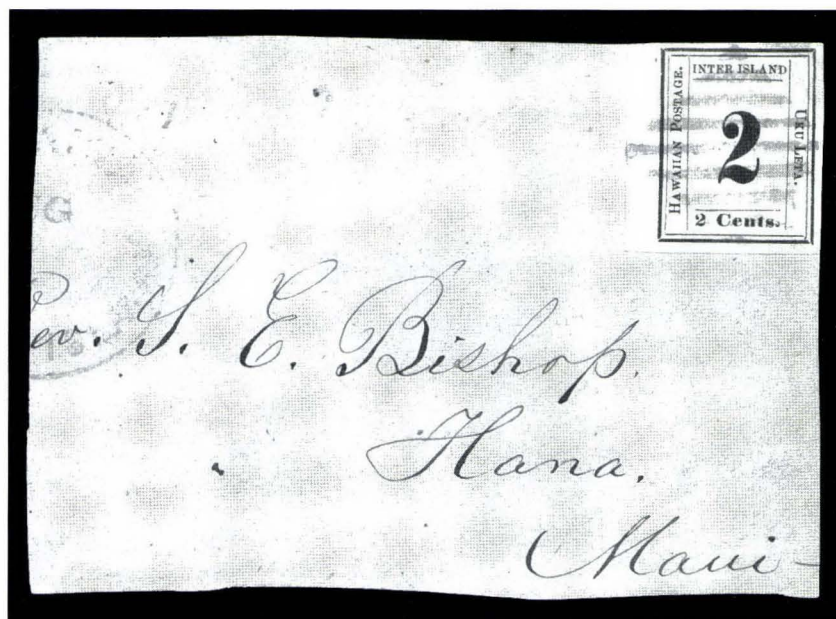 INTER ISLAND
HAWAIIAN POSTAGE.
2
UKU LETA.
2 Cents.
G
Rev. S. E. Bishop.
Hana.
Maui-